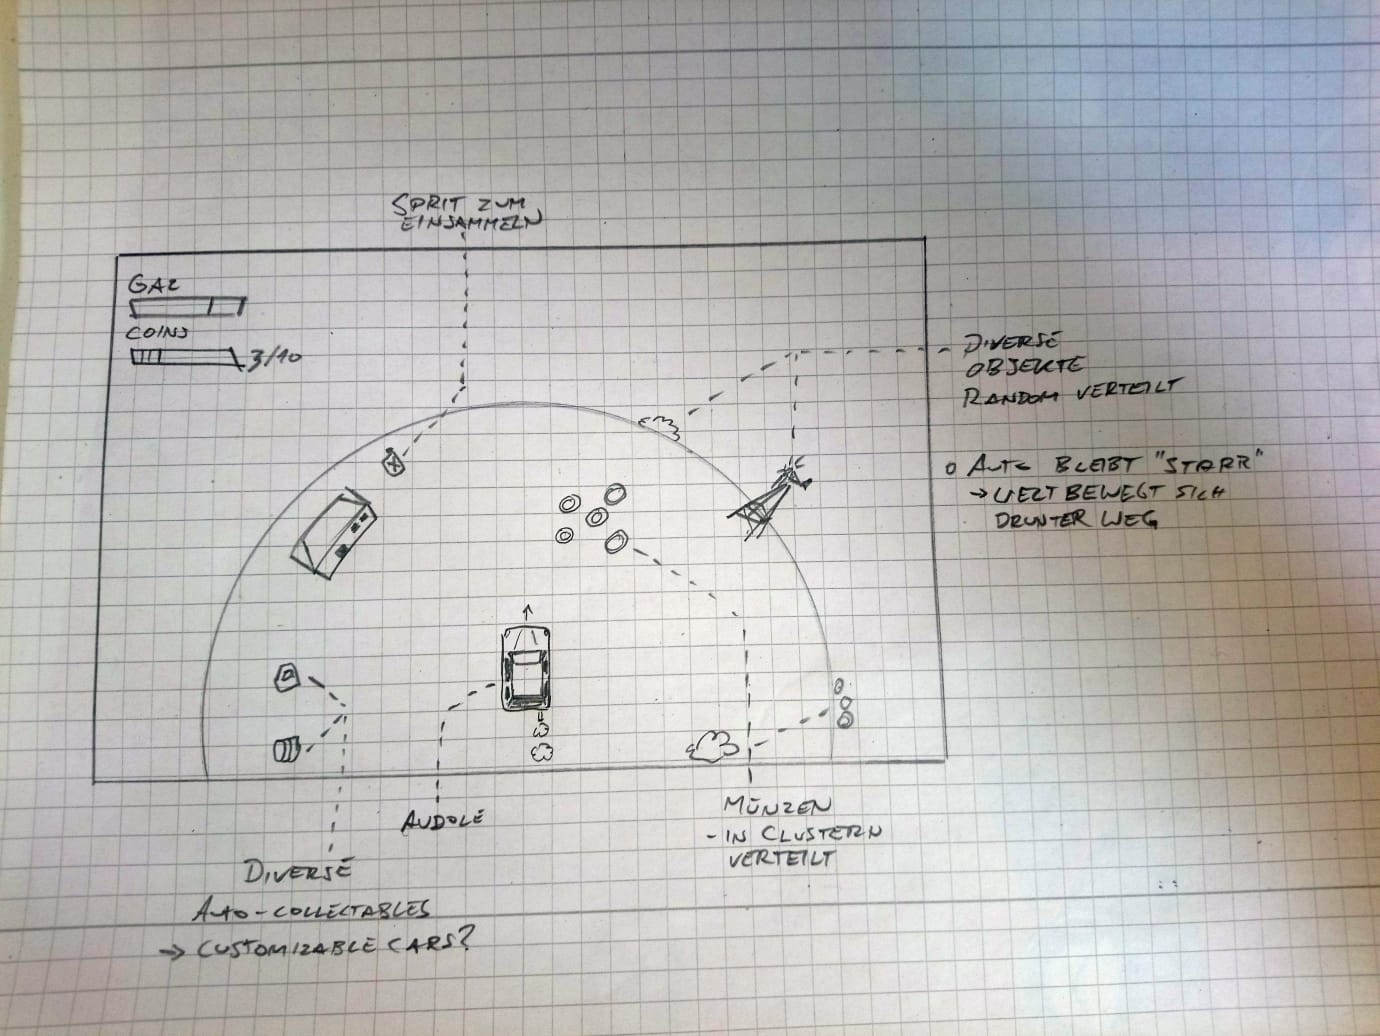 SPRIT ZUM
EINSAMMELN
GAZ
COINS
3/10
DIVERSE
OBJEKTE
RANDOM VERTEILT
o AUTO BLEIBT "STARR"
→ WELT BEWEGT SICH
DRUNTER WEG
AUDOLE
MÜNZEN
- IN CLUSTERN
VERTEILT
DIVERSE
AUTO-COLLECTABLES
→ CUSTOMIZABLE CARS?